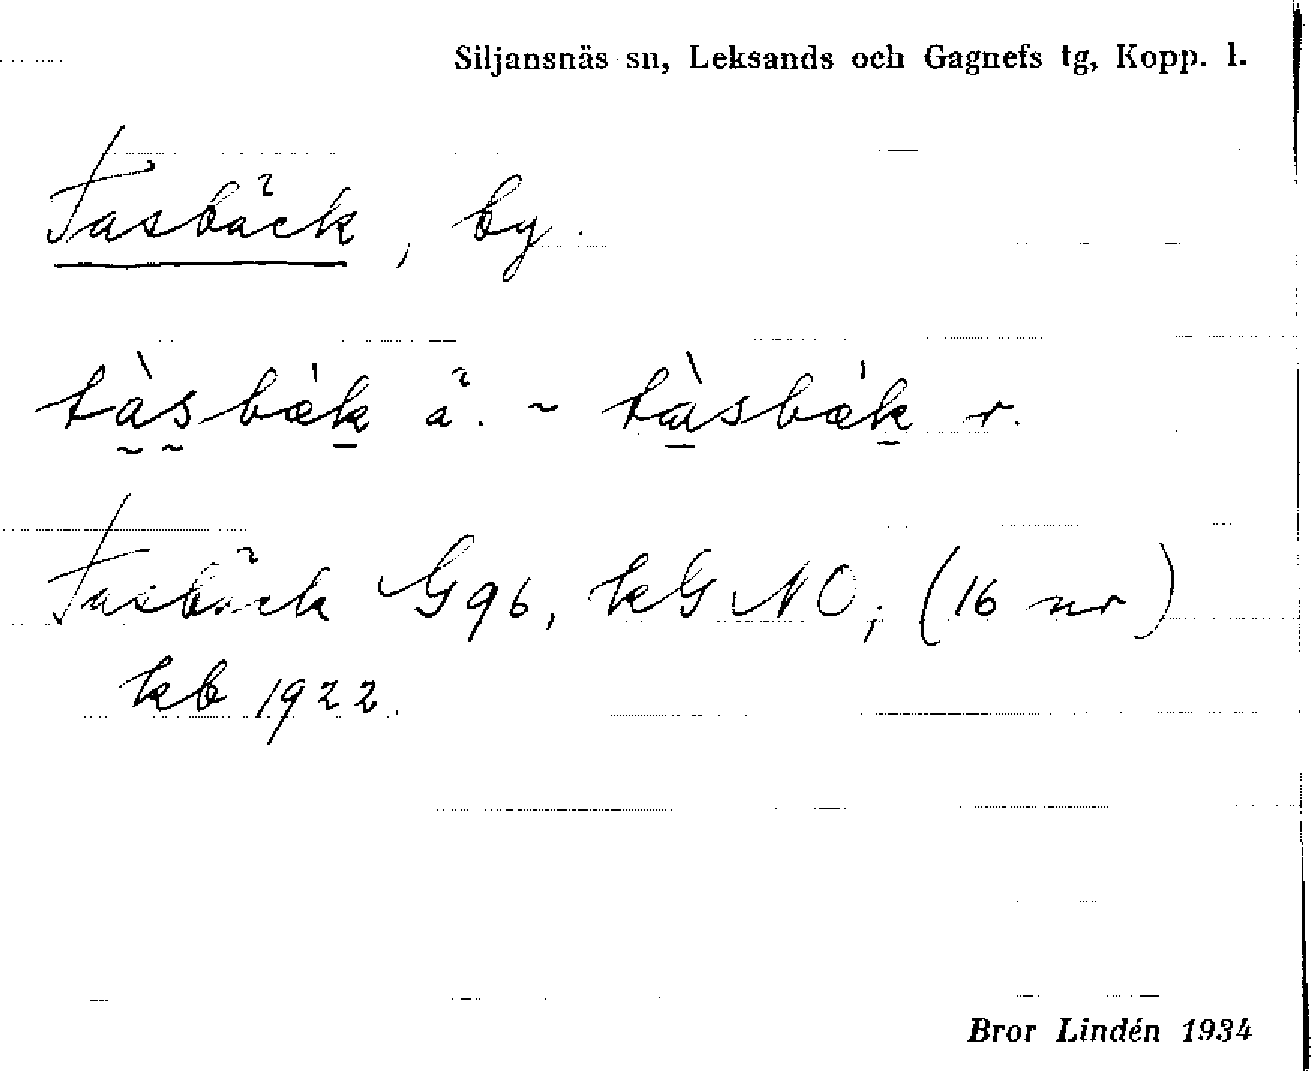 Siljansnäs sn, Leksands och Gagnefs tg, Kopp. l.
Tasbäck, by.
tàsbæ̀k ä. ~ tàsbæ̀k r.
Tasbäck G96, kG NO; (16 nr)
kb 1922.
Bror Lindén 1934